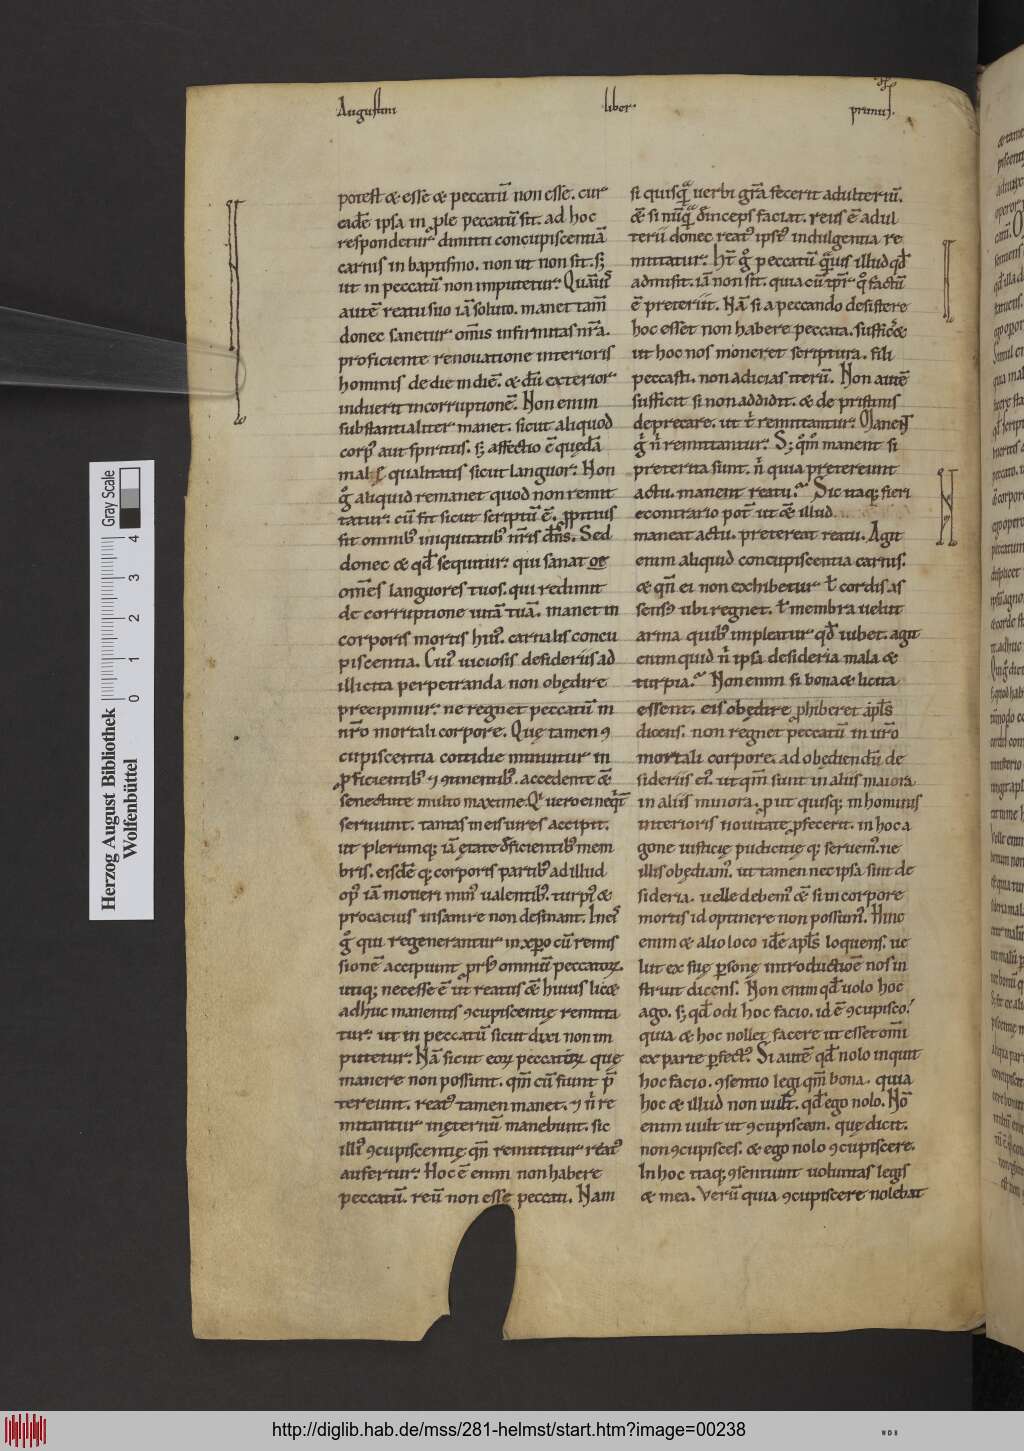 Augustini liber primus.
potest & esse & peccatū non esse. cur
eadē ipsa in ꝓle peccatū sit. ad hoc
respondetur dimitti concupiscentiā
carnis in baptismo. non ut non sit. s;
ut in peccatū non imputetur. Quāuis
autē reatu suo iā soluto. manet tam̄
donec sanetur om̄is infirmitas nr̄a.
proficiente renouatione interioris
hominis de die in diē. & dū exterior
induerit incorruptionē. Non enim
substantialiter manet. sicut aliquod
corp᷒ aut spiritus. s; affectio ē quędā
malę qualitatis sicut languor. Non
gͦ aliquid remanet quod non remit
tatur. cū fit sicut scriptū ē. ꝓpitius
fit omnib᷒ iniquitatib᷒ nr̄is dn̄s. Sed
donec & qd̄ sequitur. qui sanat oē
om̄es languores tuos. qui redimit
de corruptione uitā tuā. manet in
corporis mortis hui᷒. carnalis concu
piscentia. Cui᷒ uiciosis desideriis ad
illicita perpetranda non obędire
precipimur. ne regnet peccatū in
nr̄o mortali corpore. Quę tamen ꝯ
cupiscentia cottidie minuitur in
ꝓficientib᷒ ⁊ ꝯtinentib᷒. accedente &̄
senectute multo maxime. Qͥ uero ei neqͥt̄
seruiunt. tantas in eis uires accipit.
ut plerumq; iā ętate deficientib᷒ mem
bris. eisdē q; corporis partib᷒ ad illud
op᷒ iā moueri min᷒ ualentib᷒. turpi᷒ &
procacius insanire non desinant. In eis
gͦ qui regenerantur in xp̄o cū remis
sionē accipiunt ꝓrs᷒ omniū peccatoꝝ.
utiq; necesse ē ut reatus &̄ huius lic&
adhuc manentis ꝯcupiscentię remitta
tur. ut in peccatū sicut dixi non im
putetur. Nā sicut eoꝝ peccatoꝝ quę
manere non possunt. qm̄ cū fiunt p̄
tereunt. reat᷒ tamen manet. ⁊ n̄ re
mittantur in ęternū manebunt. sic
illi᷒ ꝯcupiscentię qn̄ remittitur reat᷒
aufertur. Hoc ē enim non habere
peccatū. reū non esse peccati. Nam
si quisqͣ uerbi gr̄a fecerit adulteriū.
&̄ si nūqͣ deinceps faciat. reus ē adul
terii donec reat᷒ ipsi᷒ indulgentia re
mittatur. Ht̄ gͦ peccatū qͣuis illud qd̄
admisit. iā non sit. quia cū tp̄r qͦ factū
ē preteriit. Nā si a peccando desistere
hoc esset non habere peccata. suffic̄&
ut hoc nos moneret scriptura. fili
peccasti. non adicias iterū. Non autē
sufficit si non addidit. & de pristinis
deprecare. ut t̄ remittantur. Manent
gͦ n̄ remittantur. S; qͦmͦ manent si
preterita sunt. n̄ quia pretereunt
actu. manent reatu. Sic itaq; fieri
econtrario potē ut &̄ illud
maneat actu. pretereat reatu. Agit
enim aliquid concupiscentia carnis.
& qn̄ ei non exhibetur t̄ cordis as
sens᷒ ubi regnet. t̄ membra uelut
arma quib᷒ impleatur qd̄ iubet. agit
enim quid n̄ ipsa desideria mala &
turpia. Non enim si bona & licita
essent. eis obędire ꝓhiberet apl̄s
dicens. non regnet peccatū in ur̄o
mortali corpore. ad obediendū de
sideriis ei᷒. ut qm̄ sunt in aliis maiora
in aliis minora. ꝓut quisq; in hominis
interioris nouitate ꝓfecerit. in hoc a
gone iusticię pudicitię q; seruem᷒. ne
illis obędiam᷒. ut tamen nec ipsa sint de
sideria. uelle debem᷒ &̄ si in corpore
mortis id optinere non possum᷒. Hinc
enim & alio loco idē apl̄s loquens. ue
lut ex suę ꝑsonę introductiōe nos in
struit dicens. Non enim qd̄ uolo hoc
ago. s; qd̄ odi hoc facio. id ē ꝯcupisco.
quia & hoc nollet facere ut esset om̄i
ex parte ꝑfect᷒. Si autē qd̄ nolo inquit
hoc facio. ꝯsentio legi qm̄ bona. quia
hoc & illud non uult. qd̄ ego nolo. Nō
enim uult ut ꝯcupiscam. quę dicit.
non ꝯcupisces. & ego nolo ꝯcupiscere.
In hoc itaq; ꝯsentiunt uoluntas legis
& mea. Verū quia ꝯcupiscere nolebat
Herzog August Bibliothek
Wolfenbüttel
0 1 2 3 4
Gray Scale
http://diglib.hab.de/mss/281-helmst/start.htm?image=00238
WDB